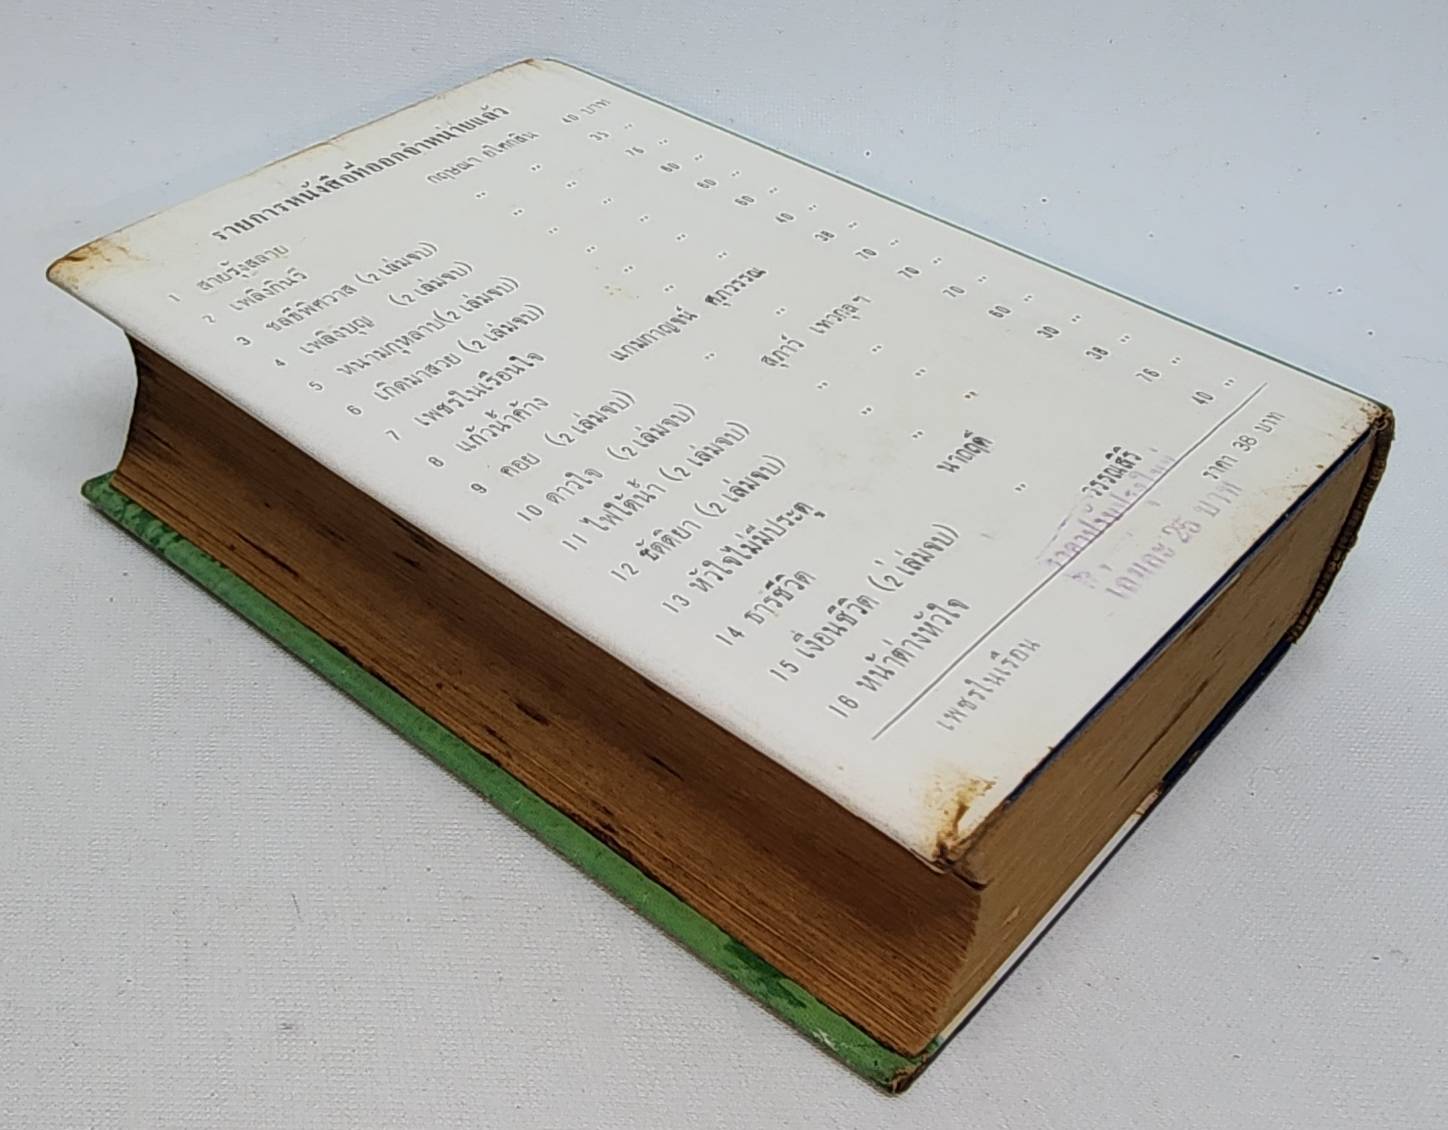 รายการหนังสือที่ออกจำหน่ายแล้ว
1 สายรุ้งสลวย กฤษณา อโศกสิน 40 บาท
2 เพลิงกินรี " " 35 "
3 ชลธีพิศวาส (2 เล่มจบ) " " 76 "
4 เพลิงบุญ (2 เล่มจบ) " " 60 "
5 หนามกุหลาบ (2 เล่มจบ) " " 60 "
6 เกิดมาสวย (2 เล่มจบ) " " 60 "
7 เพชรในเรือนใจ " " 40 "
8 แก้วน้ำค้าง แกมกาญจน์ ศุภวรรณ 38 "
9 คอย (2 เล่มจบ) " " 70 "
10 ดาวใจ (2 เล่มจบ) สุภาว์ เทวกุลฯ 70 "
11 ไฟใต้น้ำ (2 เล่มจบ) " " 70 "
12 ขัตติยา (2 เล่มจบ) " " 60 "
13 หัวใจไม่มีประตู " " 30 "
14 ธารชีวิต นาถฤดี 38 "
15 เงื่อนชีวิต (2 เล่มจบ) " 76 "
16 หน้าต่างหัวใจ วรรณสิริ 40 "
เพชรในเรือน ราคา 38 บาท
ราคาปรับปรุงใหม่
เล่มละ 25 บาท